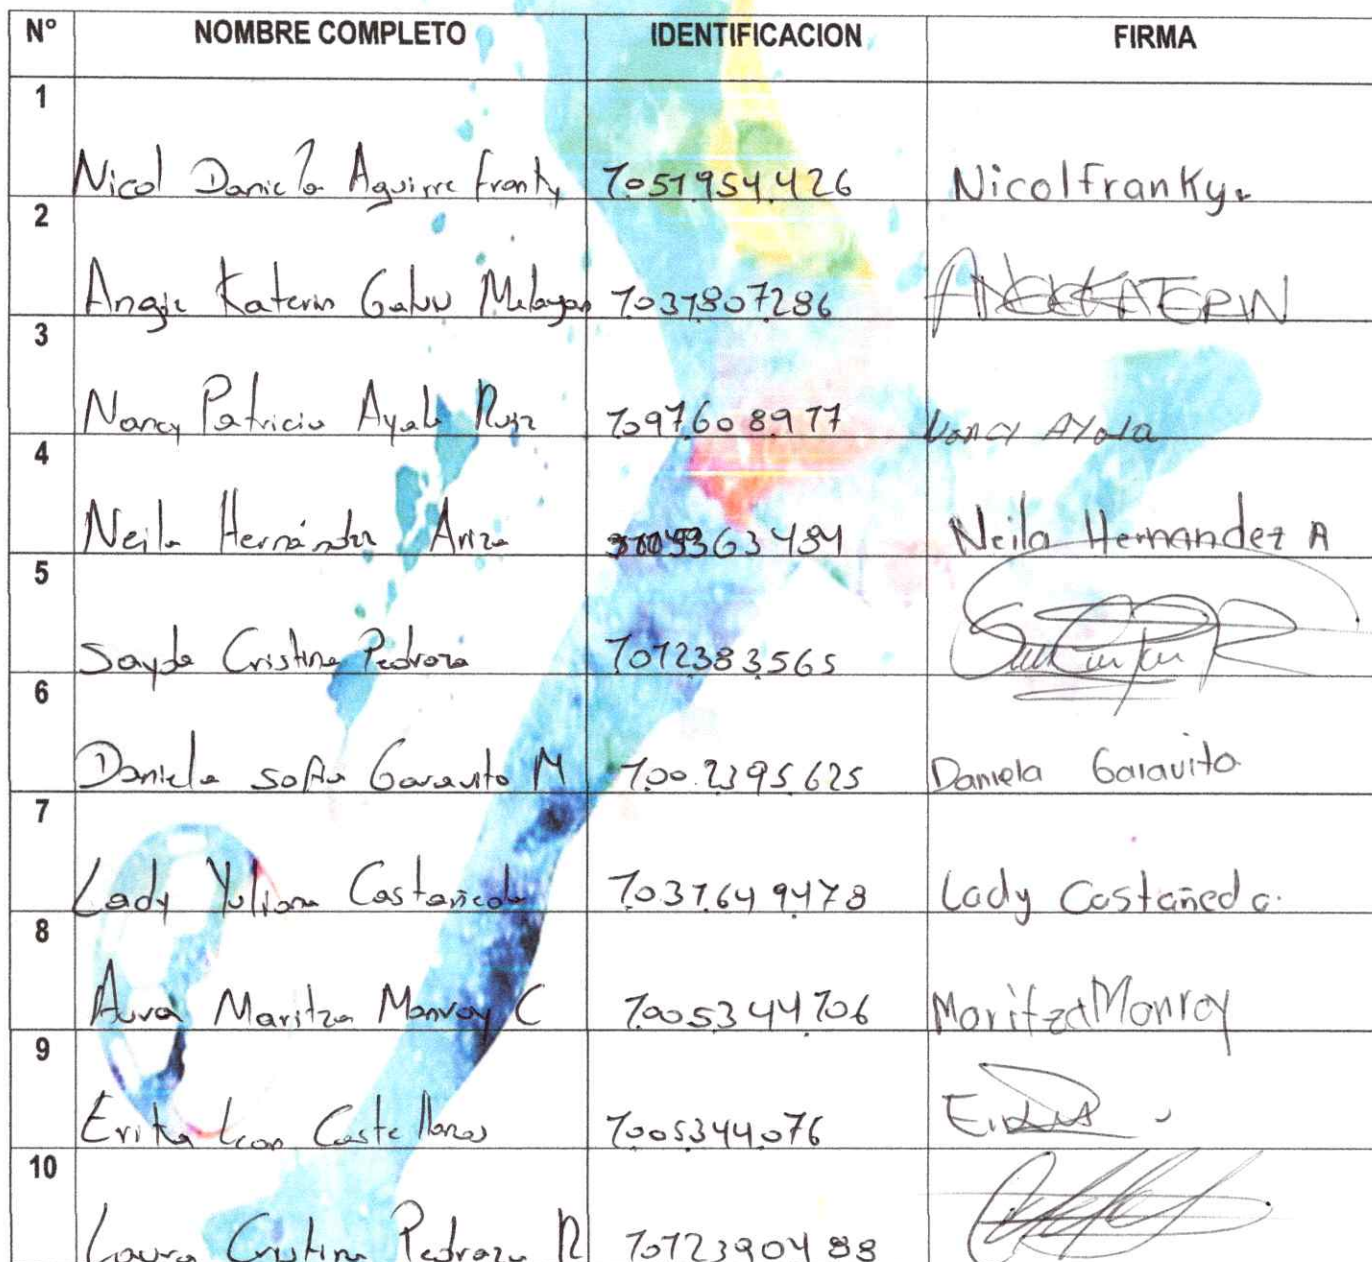 Nº NOMBRE COMPLETO IDENTIFICACION FIRMA
1
Nicol Daniela Aguirre franky 1051954426 Nicolfranky.
2
Angie Katerin Galvis 1031807286 ANGIEKATERIN
3
Nancy Patricia Ayala Ruiz 1097608977 Nancy Ayala
4
Neila Hernández Ariza 63484 Neila Hernandez A
5
Sayda Cristina Pedraza 1012383565
6
Daniela sofia Garavito M 1.002395625 Daniela Garavito
7
Lady Yuliana Castañeda 1031649478 Lady Castañeda.
8
Aura Maritza Monroy C 1005344106 Maritza Monroy
9
Erika Leon Castellanos 1005344076
10
Laura Cristina Pedraza R 1012390488